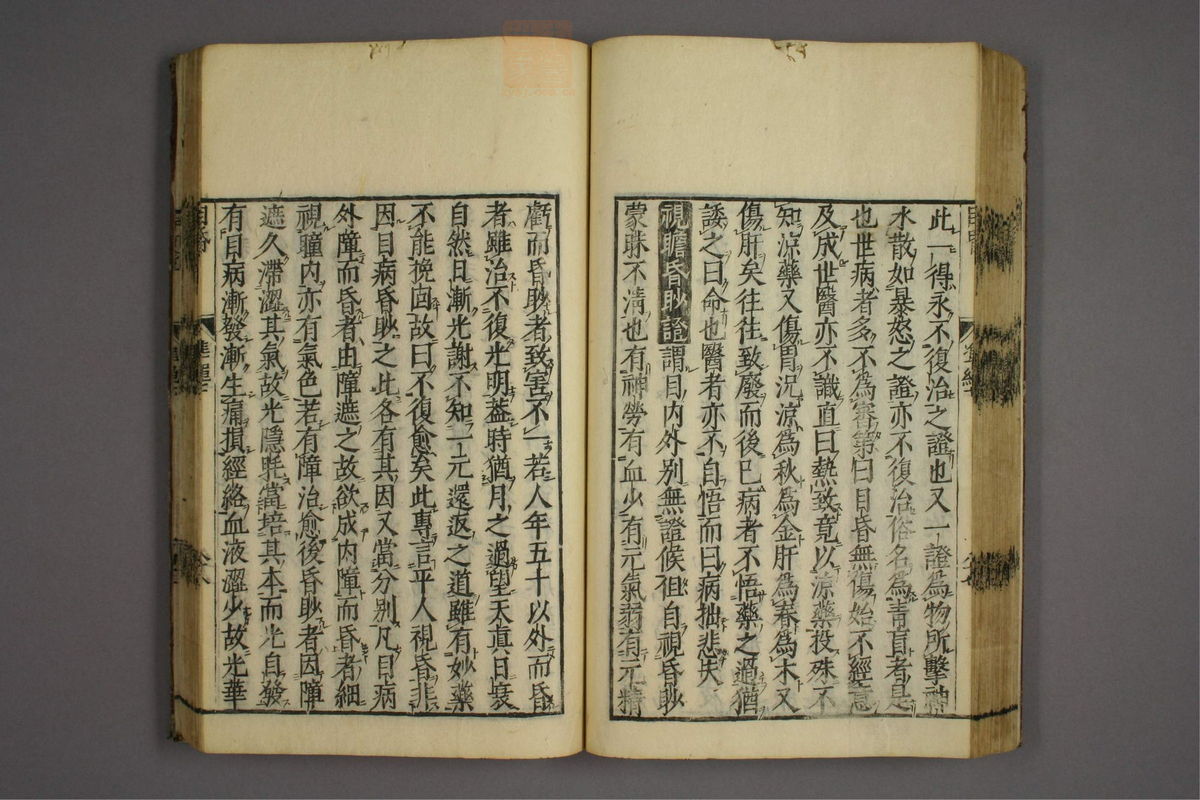 此一得永不復治之證也又一證為物所擊神
水散如暴怒之證亦不復治俗名為青盲者是
也世病者多不為審第曰目昏無傷始不經意
及成世醫亦不識直曰熱致竟以涼藥投殊不
知涼藥又傷胃況涼為秋為金肝為春為木又
傷肝矣往往致廢而後已病者不悟藥之過猶
諉之曰命也醫者亦不自悟而曰病拙悲夫
視瞻昏眇證謂目內外別無證候但自視昏眇
蒙昧不清也有神勞有血少有元氣弱有元精
虧而昏眇者致害不一若人年五十以外而昏
者雖治不復光明葢時猶月之過望天真日衰
自然日漸光謝不知一元還返之道雖有妙藥
不能挽回故曰不復愈矣此專言平人視昏非
因目病昏眇之比各有其因又當分別凡目病
外障而昏者由障遮之故欲成內障而昏者細
視瞳內亦有氣色若有障治愈後昏眇者因障
遮久滯澀其氣故光隱眊當培其本而光自發
有目病漸發漸生痛損經絡血液澀少故光華